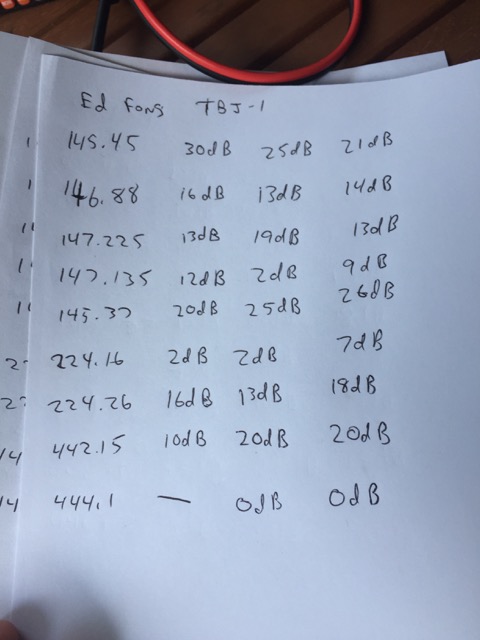 Ed Fong TBJ-1
145.45 30dB 25dB 21dB
146.88 16dB 13dB 14dB
147.225 13dB 19dB 13dB
147.135 12dB 2dB 9dB
145.37 20dB 25dB 26dB
224.16 2dB 2dB 7dB
224.26 16dB 13dB 18dB
442.15 10dB 20dB 20dB
444.1 — 0dB 0dB